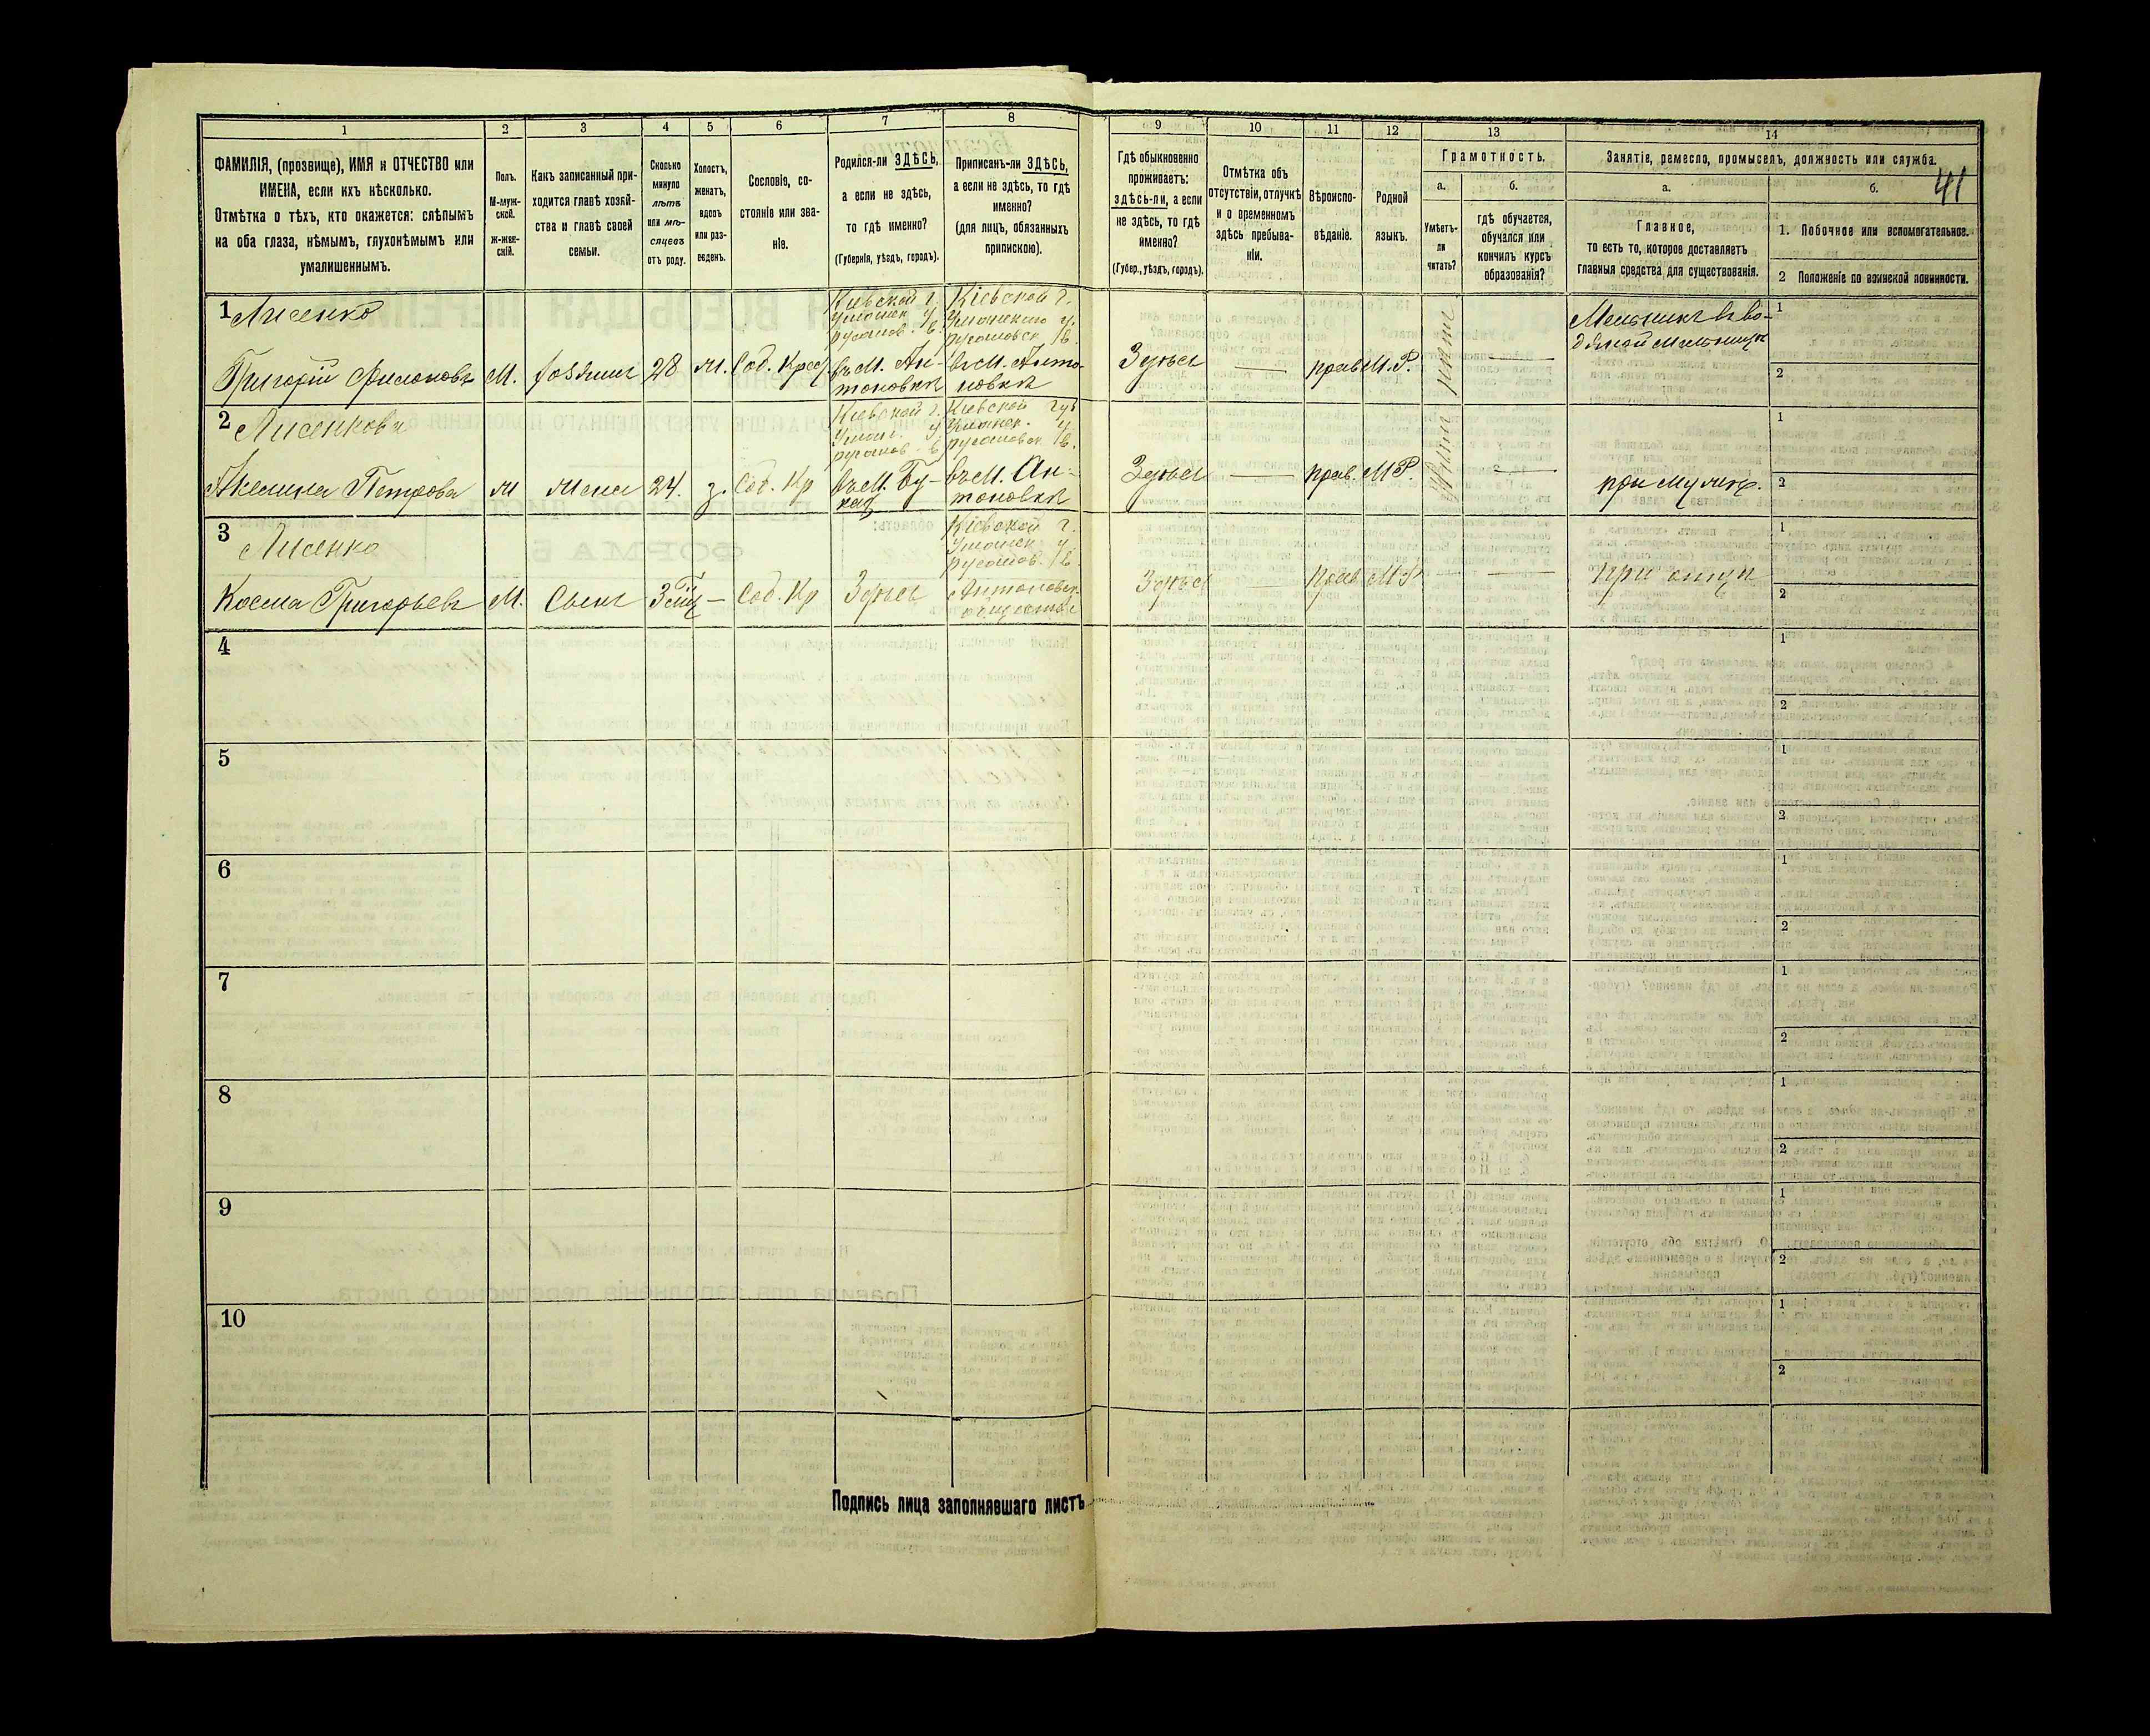 1
2
3
4
5
6
7
8
9
10
11
12
13
14
41
ФАМИЛІЯ, (прозвище), ИМЯ и ОТЧЕСТВО или
ИМЕНА, если ихъ нѣсколько.
Отмѣтка о тѣхъ, кто окажется: слѣпымъ
на оба глаза, нѣмымъ, глухонѣмымъ или
умалишеннымъ.
Полъ.
М-муж-
ской.
ж-жен-
скій.
Какъ записанный при-
ходится главѣ хозяй-
ства и главѣ своей
семьи.
Сколько
минуло
лѣтъ
или мѣ-
сяцевъ
отъ роду.
Холостъ,
женатъ,
вдовъ
или раз-
веденъ.
Сословіе, со-
стояніе или зва-
ніе.
Родился-ли ЗДѢСЬ,
а если не здѣсь,
то гдѣ именно?
(Губернія, уѣздъ, городъ).
Приписанъ-ли ЗДѢСЬ,
а если не здѣсь, то гдѣ
именно?
(для лицъ, обязанныхъ
припискою).
Гдѣ обыкновенно
проживаетъ:
здѣсь-ли, а если
не здѣсь, то гдѣ
именно?
(Губер., уѣздъ, городъ).
Отмѣтка объ
отсутствіи, отлучкѣ
и о временномъ
здѣсь пребыва-
ніи.
Вѣроиспо-
вѣданіе.
Родной
языкъ.
Грамотность.
а.
Умѣетъ-
ли
читать?
б.
гдѣ обучается,
обучался или
кончилъ курсъ
образованія?
Занятіе, ремесло, промыселъ, должность или служба.
а.
Главное,
то есть то, которое доставляетъ
главныя средства для существованія.
б.
1. Побочное или вспомогательное.
2 Положеніе по воинской повинности.
1 Лисенко
Григорій Филоновъ М. хозяинъ 28 ж. Соб. Крес
Кіевской г.
Уманск у.
русалов. в.
въ М. Ан-
тоновки
Кіевской г.
Уманскаго у.
русаловск в.
въ М. Анто-
новки
Здѣсь прав М.Р. нѣтъ
Мельникъ в во-
дяной мельницы
1
2
2 Лисенкова
Акелина Петрова жена 24. з. Соб. Кр
Кіевской г.
Уман. у
русалов. в
въ М. Бу-
ках
Кіевской губ
Уманск. у.
русаловск в.
въ М. Ан-
тоновки
Здѣсь прав. М.Р. нѣтъ
при мужѣ.
1
2
3 Лисенко
Косма Григорьевъ М. Сынъ 3 Соб. Кр Здѣсь
Кіевской г.
Уманск у
русалов. в.
Антоновск.
Здѣсь прав М Р
при отцѣ
1
2
4
1
2
5
1
2
6
1
2
7
1
2
8
1
2
9
1
2
10
1
2
Подпись лица заполнявшаго листъ